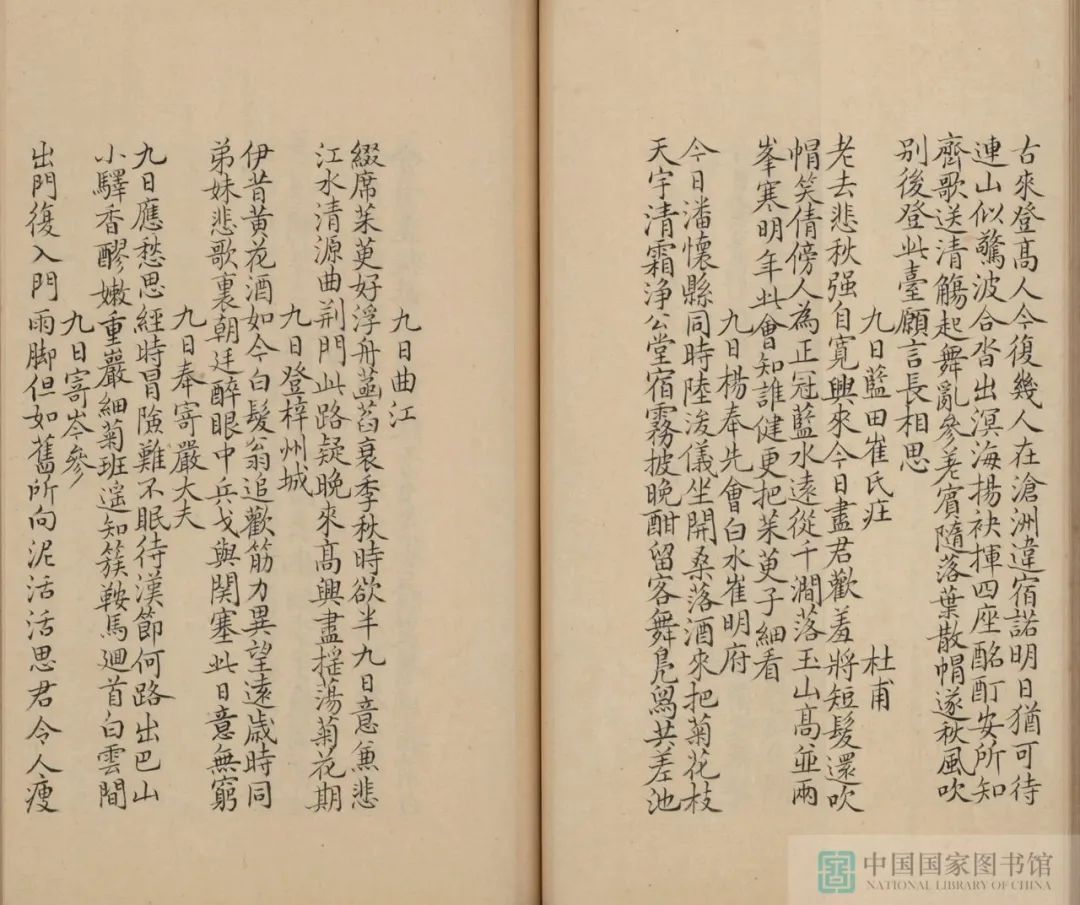 古來登髙人今復幾人在滄洲違宿諾明日猶可待
連山似驚波合沓出溟海揚袂揮四座酩酊安所知
齊歌送清觴起舞亂參差賓隨落葉散帽逐秋風吹
別後登此臺願言長相思
九日藍田崔氏庄 杜甫
老去悲秋强自寛興來今日盡君歡羞將短髮還吹
帽笑倩傍人為正冠藍水遠從千澗落玉山髙並兩
峯寒明年此會知誰健更把茱萸子細看
九日楊奉先會白水崔明府
今日潘懷縣同時陸浚儀坐開桑落酒來把菊花枝
天宇清霜浄公堂宿霧披晚酣留客舞鳧舄共差池
九日曲江
綴席茱萸好浮舟菡萏衰季秋時欲半九日意兼悲
江水清源曲荆門此路疑晚來髙興盡揺蕩菊花期
九日登梓州城
伊昔黄花酒如今白髮翁追歡筋力異望遠歳時同
弟妹悲歌裏朝廷醉眼中兵戈與関塞此日意無窮
九日奉寄嚴大夫
九日應愁思經時冒險難不眠待漢節何路出巴山
小驛香醪嫩重巖細菊班遥知簇鞍馬廻首白雲間
九日寄岑參
出門復入門雨脚但如舊所向泥活活思君令人瘦
中国国家图书馆
NATIONAL LIBRARY OF CHINA